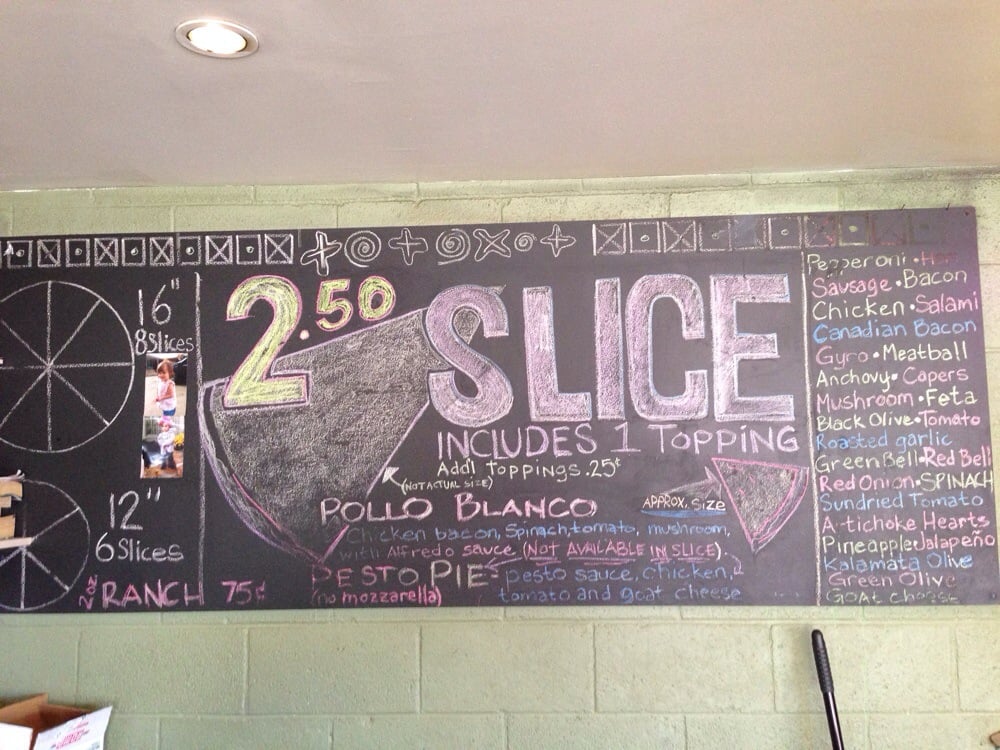 16"
8 Slices
12"
6 Slices
2oz RANCH 75¢
2.50 SLICE
INCLUDES 1 TOPPING
Add'l Toppings .25¢
(NOT ACTUAL SIZE)
APPROX. SIZE
POLLO BLANCO
Chicken bacon, Spinach, tomato, mushroom,
with Alfredo sauce (NOT AVAILABLE IN SLICE).
PESTO PIE- pesto sauce, chicken,
(no mozzarella) tomato and goat cheese
Pepperoni • Ham
Sausage • Bacon
Chicken • Salami
Canadian Bacon
Gyro • Meatball
Anchovy • Capers
Mushroom • Feta
Black Olive • Tomato
Roasted garlic
Green Bell • Red Bell
Red Onion • SPINACH
Sundried Tomato
A-tichoke Hearts
Pineapple • Jalapeño
Kalamata Olive
Green Olive
Goat cheese